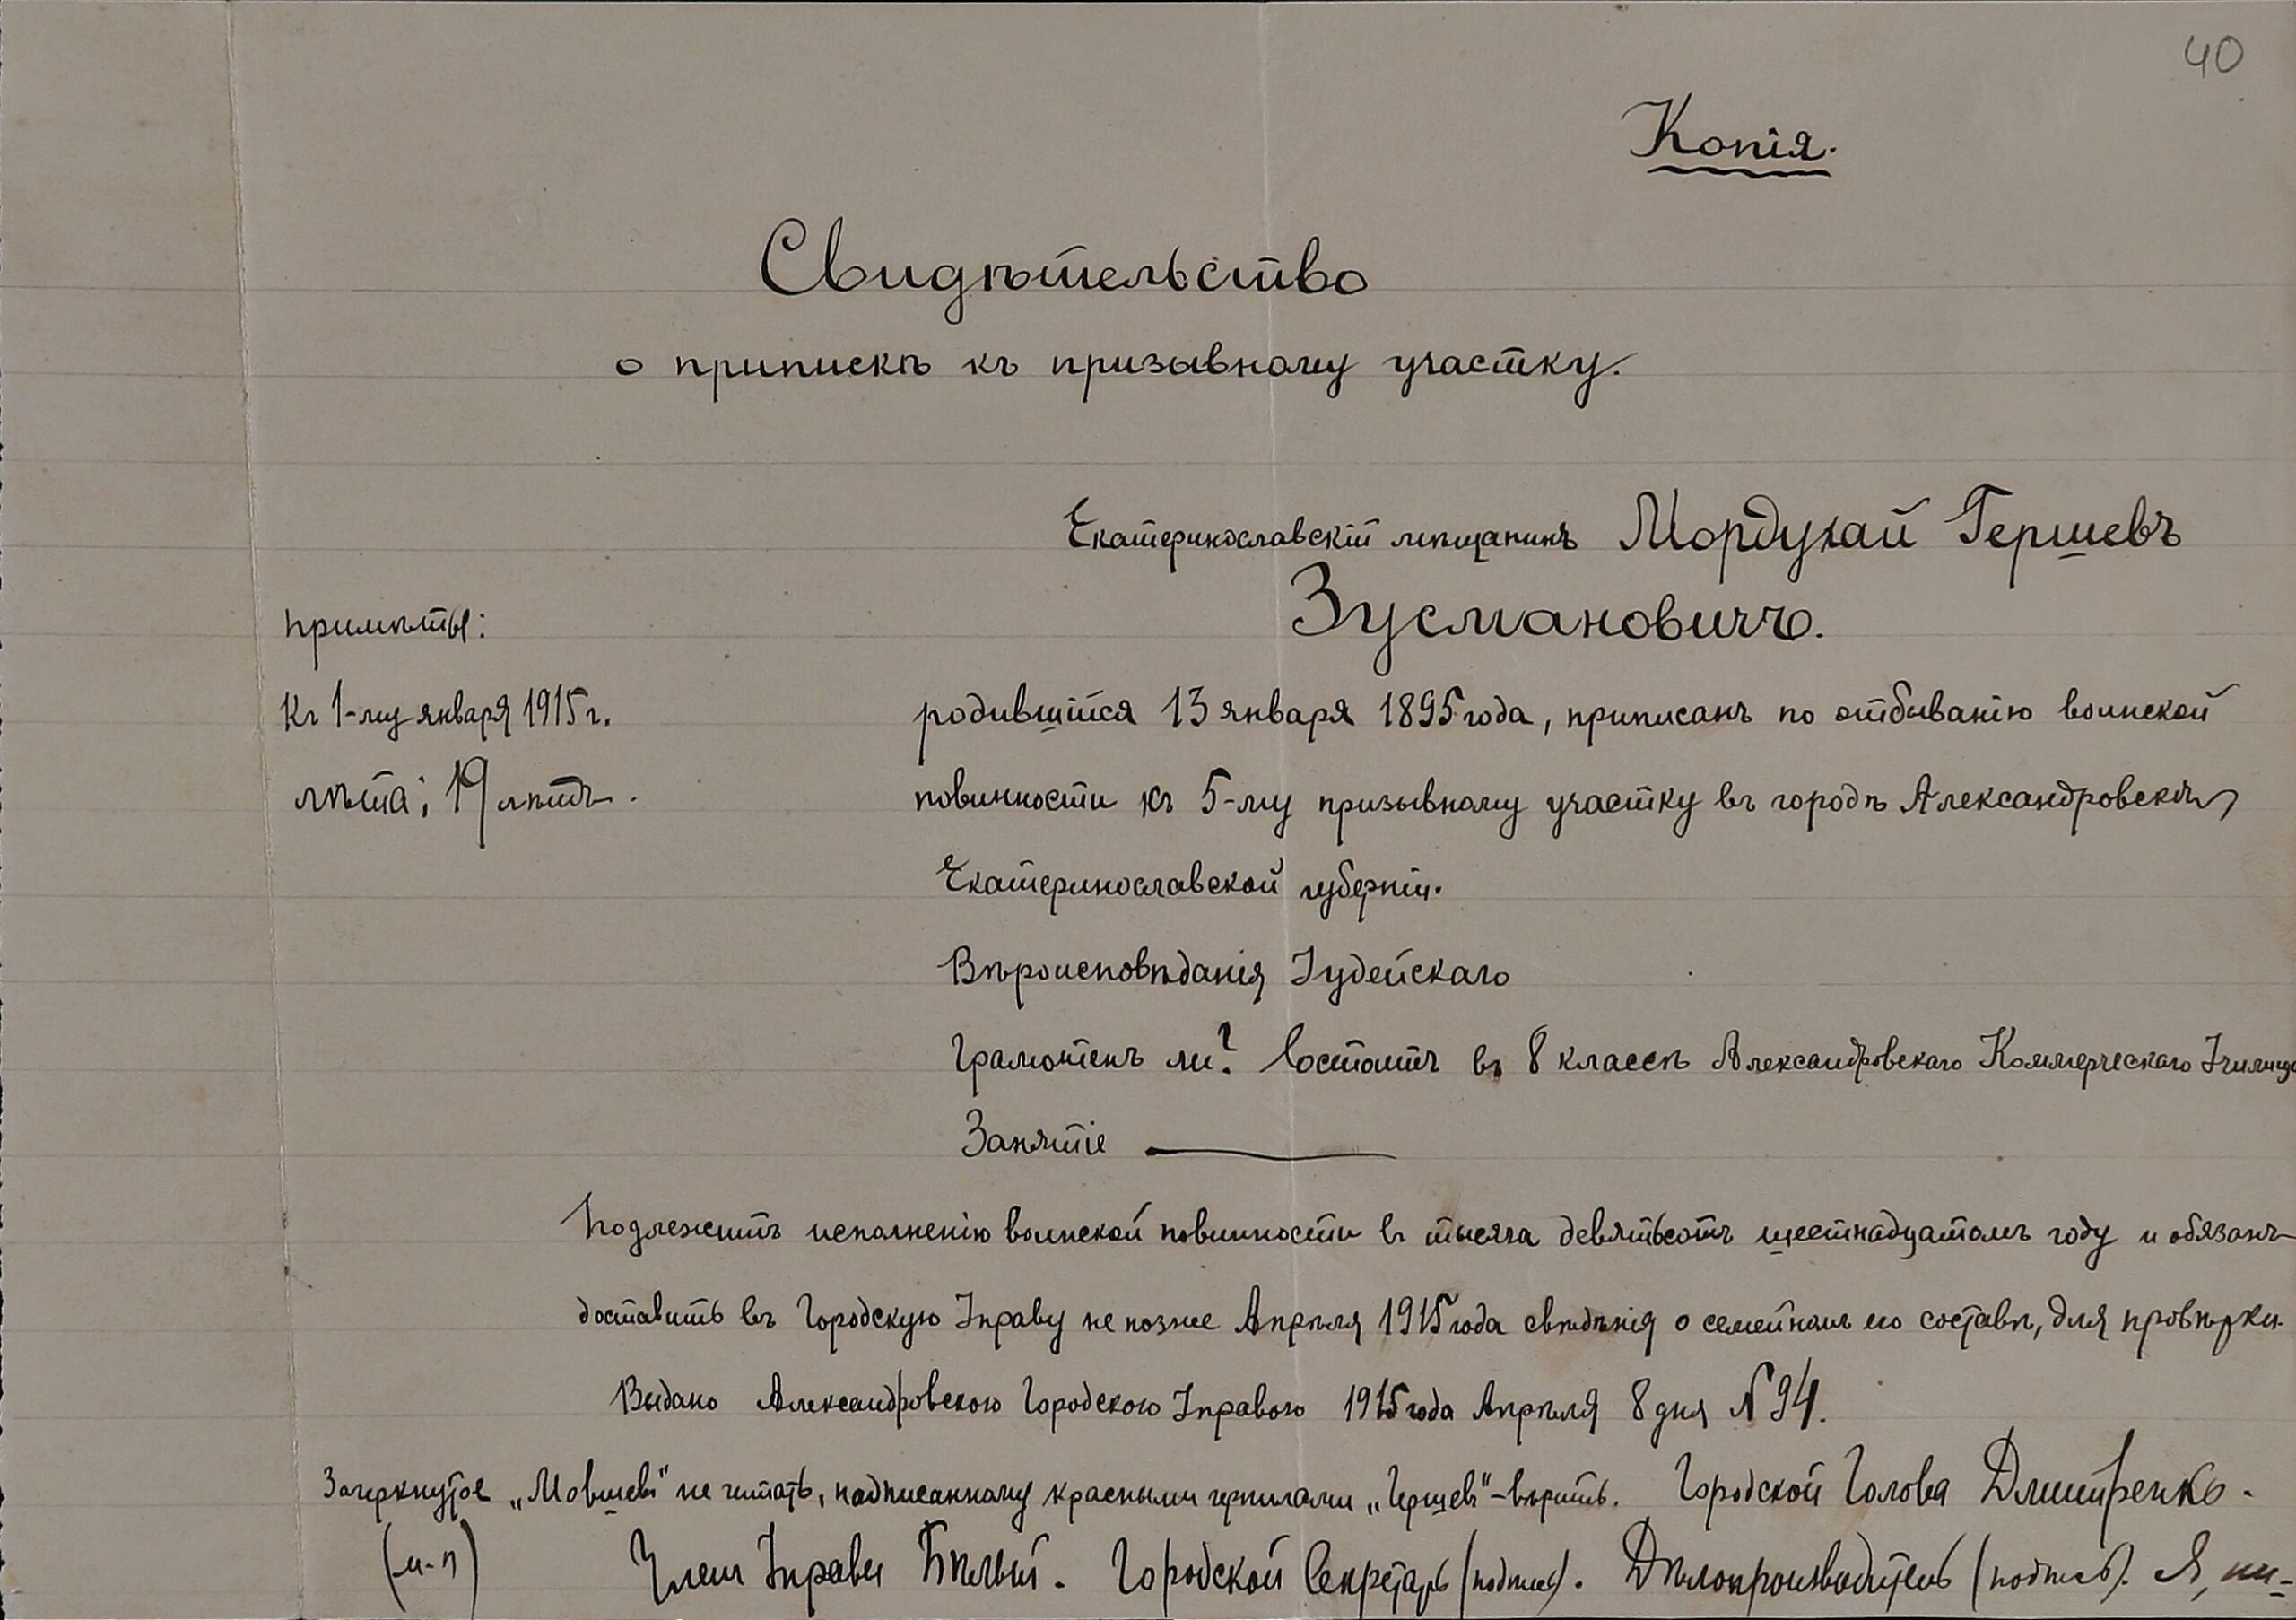 40
Копія.
Свидѣтельство
о припискѣ къ призывному участку.
Екатеринославскій мѣщанинъ Мордухай Гершевъ
Зусмановичъ.
примѣты:
Къ 1-му января 1915 г.
лѣта: 19 лѣтъ.
родившійся 13 января 1895 года, приписанъ по отбыванію воинской
повинности къ 5-му призывному участку въ городѣ Александровскѣ,
Екатеринославской губерніи.
Вѣроисповѣданія Іудейскаго
Грамотенъ ли? Состоитъ въ 8 классѣ Александровскаго Коммерческаго Училища
Занятіе
Подлежитъ исполненію воинской повинности въ тысяча девятьсотъ шестнадцатомъ году и обязанъ
доставить въ Городскую Управу не позже Апрѣля 1915 года свѣдѣнія о семейномъ его составѣ, для провѣрки.
Выдано Александровскою Городскою Управою 1915 года Апрѣля 8 дня № 94.
Зачеркнутое „Мовшевъ" не читать, надписанному красными чернилами „Гершевъ" - вѣрить. Городской Голова Дмитренко.
(м-п) Членъ Управы Бѣлый. Городской Секретарь (подпись). Дѣлопроизводитель (подпись). Я, ни-